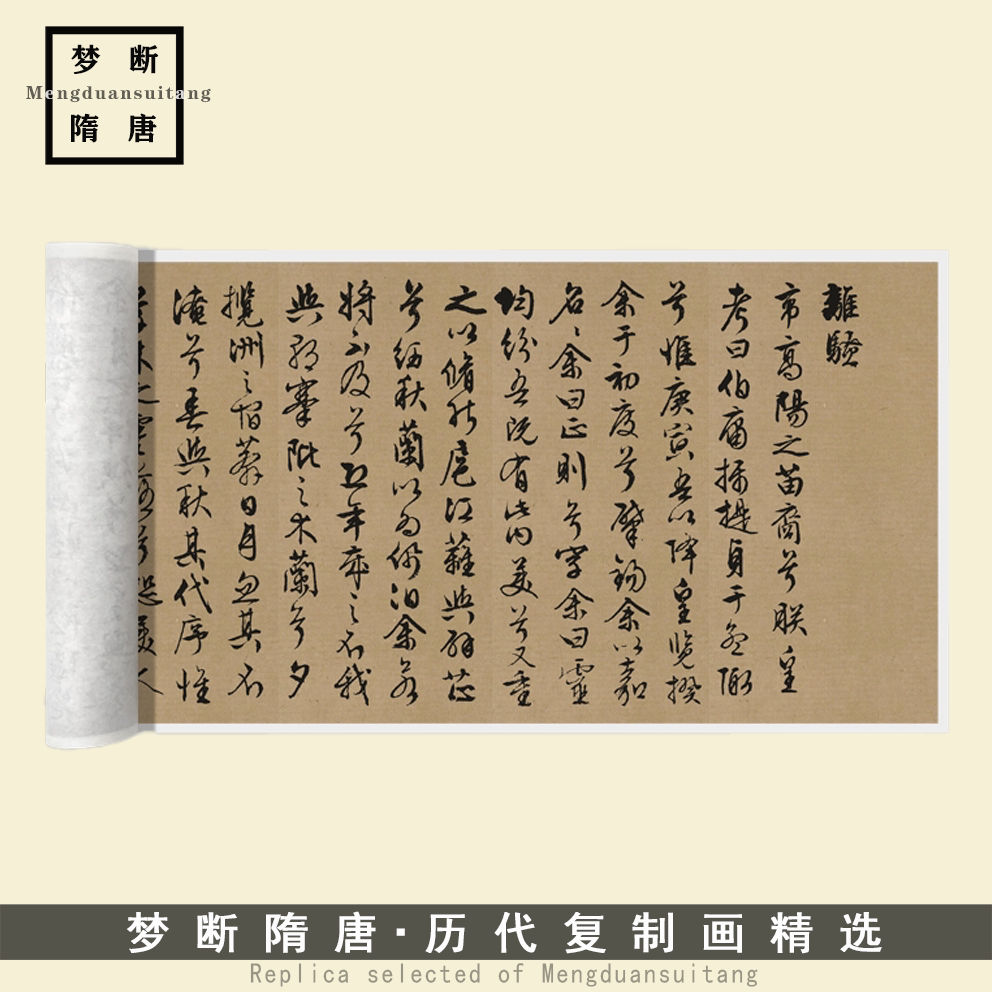 梦断
Mengduansuitang
隋唐
離騷
帝高陽之苗裔兮朕皇
考曰伯庸攝提貞于孟陬
兮惟庚寅吾以降皇覽揆
余于初度兮肇錫余以嘉
名〻余曰正則兮字余曰靈
均紛吾既有此內美兮又重
之以脩能扈江蘺與辟芷
兮紉秋蘭以為佩汩余若
將不及兮恐年歲之不我
與朝搴阰之木蘭兮夕
攬洲之宿莽日月忽其不
淹兮春與秋其代序惟
草木之零落兮恐美人
梦断隋唐·历代复制画精选
Replica selected of Mengduansuitang